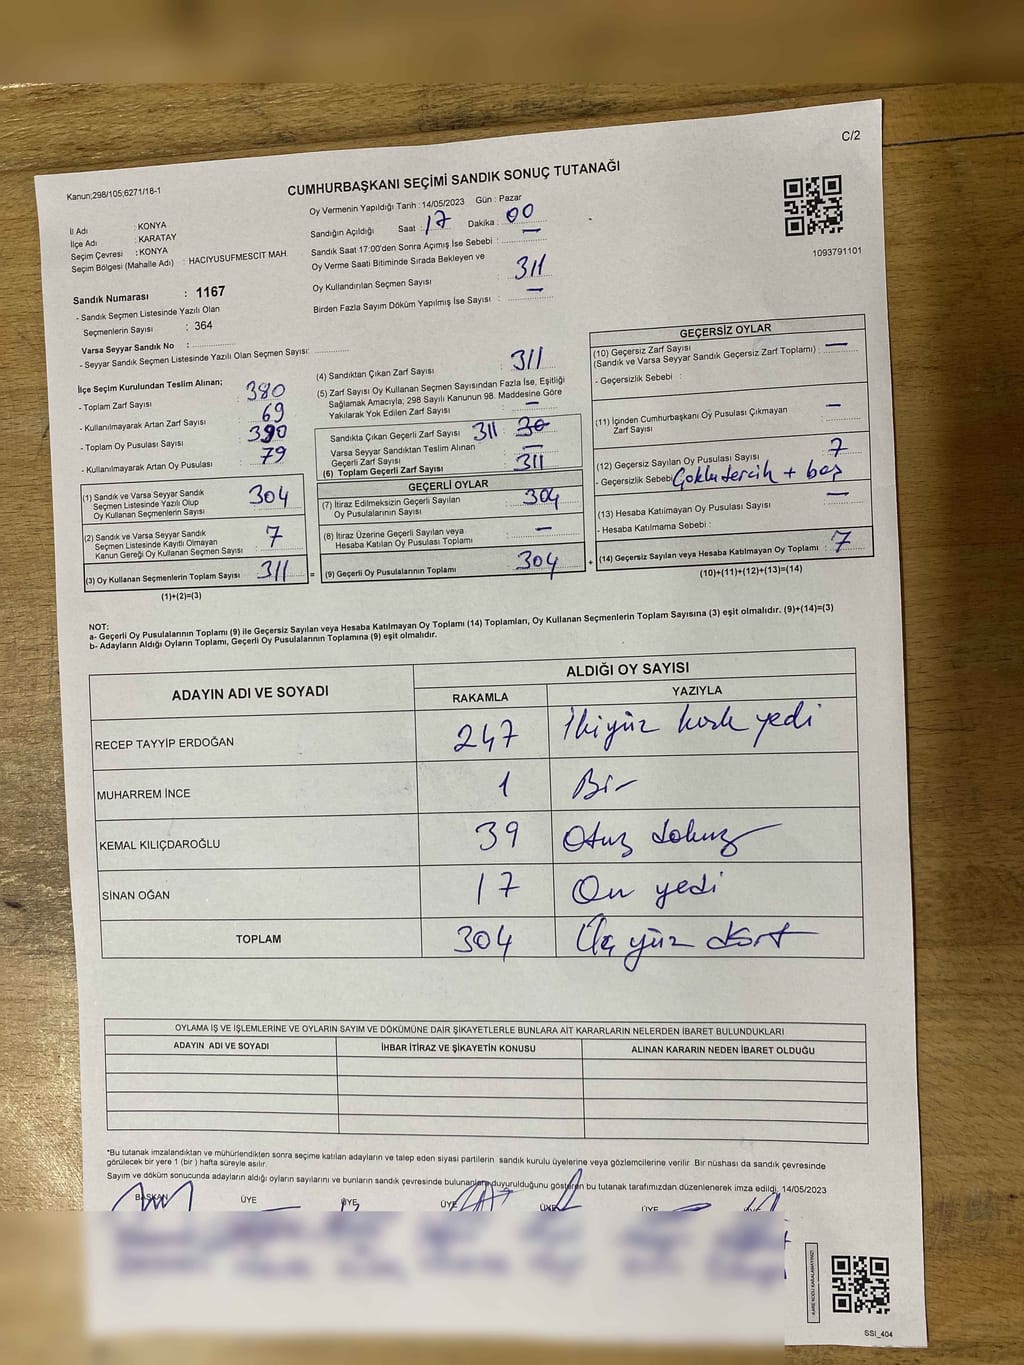 C/2
Kanun;298/105;6271/18-1
CUMHURBAŞKANI SEÇİMİ SANDIK SONUÇ TUTANAĞI
İl Adı : KONYA
İlçe Adı : KARATAY
Seçim Çevresi : KONYA
Seçim Bölgesi (Mahalle Adı) : HACIYUSUFMESCİT MAH.
Sandık Numarası : 1167
- Sandık Seçmen Listesinde Yazılı Olan
Seçmenlerin Sayısı : 364
Varsa Seyyar Sandık No :
- Seyyar Sandık Seçmen Listesinde Yazılı Olan Seçmen Sayısı:
Oy Vermenin Yapıldığı Tarih : 14/05/2023 Gün : Pazar
Sandığın Açıldığı Saat : 17 Dakika : 00
Sandık Saat 17:00'den Sonra Açımış İse Sebebi : —
Oy Verme Saati Bitiminde Sırada Bekleyen ve
Oy Kullandırılan Seçmen Sayısı : 311
Birden Fazla Sayım Döküm Yapılmış İse Sayısı : —
1093791101
İlçe Seçim Kurulundan Teslim Alınan;
- Toplam Zarf Sayısı : 380
- Kullanılmayarak Artan Zarf Sayısı : 69
- Toplam Oy Pusulası Sayısı : 390
- Kullanılmayarak Artan Oy Pusulası : 79
(1) Sandık ve Varsa Seyyar Sandık
Seçmen Listesinde Yazılı Olup
Oy Kullanan Seçmenlerin Sayısı : 304
(2) Sandık ve Varsa Seyyar Sandık
Seçmen Listesinde Kayıtlı Olmayan
Kanun Gereği Oy Kullanan Seçmen Sayısı : 7
(3) Oy Kullanan Seçmenlerin Toplam Sayısı : 311 =
(1)+(2)=(3)
(4) Sandıktan Çıkan Zarf Sayısı : 311
(5) Zarf Sayısı Oy Kullanan Seçmen Sayısından Fazla İse, Eşitliği
Sağlamak Amacıyla; 298 Sayılı Kanunun 98. Maddesine Göre
Yakılarak Yok Edilen Zarf Sayısı : —
Sandıkta Çıkan Geçerli Zarf Sayısı 311
Varsa Seyyar Sandıktan Teslim Alınan
Geçerli Zarf Sayısı : —
(6) Toplam Geçerli Zarf Sayısı : 311
GEÇERLİ OYLAR
(7) İtiraz Edilmeksizin Geçerli Sayılan
Oy Pusulalarının Sayısı : 304
(8) İtiraz Üzerine Geçerli Sayılan veya
Hesaba Katılan Oy Pusulası Toplamı : —
(9) Geçerli Oy Pusulalarının Toplamı : 304 +
GEÇERSİZ OYLAR
(10) Geçersiz Zarf Sayısı
(Sandık ve Varsa Seyyar Sandık Geçersiz Zarf Toplamı) : —
- Geçersizlik Sebebi :
(11) İçinden Cumhurbaşkanı Oy Pusulası Çıkmayan
Zarf Sayısı : —
(12) Geçersiz Sayılan Oy Pusulası Sayısı : 7
- Geçersizlik Sebebi Çoklu tercih + boş
(13) Hesaba Katılmayan Oy Pusulası Sayısı : —
- Hesaba Katılmama Sebebi :
(14) Geçersiz Sayılan veya Hesaba Katılmayan Oy Toplamı : 7
(10)+(11)+(12)+(13)=(14)
NOT:
a- Geçerli Oy Pusulalarının Toplamı (9) ile Geçersiz Sayılan veya Hesaba Katılmayan Oy Toplamı (14) Toplamları, Oy Kullanan Seçmenlerin Toplam Sayısına (3) eşit olmalıdır. (9)+(14)=(3)
b- Adayların Aldığı Oyların Toplamı, Geçerli Oy Pusulalarının Toplamına (9) eşit olmalıdır.
ADAYIN ADI VE SOYADI ALDIĞI OY SAYISI
RAKAMLA YAZIYLA
RECEP TAYYİP ERDOĞAN 247 İkiyüz kırk yedi
MUHARREM İNCE 1 Bir
KEMAL KILIÇDAROĞLU 39 Otuz dokuz
SİNAN OĞAN 17 On yedi
TOPLAM 304 Üç yüz dört
OYLAMA İŞ VE İŞLEMLERİNE VE OYLARIN SAYIM VE DÖKÜMÜNE DAİR ŞİKAYETLERLE BUNLARA AİT KARARLARIN NELERDEN İBARET BULUNDUKLARI
ADAYIN ADI VE SOYADI İHBAR İTİRAZ VE ŞİKAYETİN KONUSU ALINAN KARARIN NEDEN İBARET OLDUĞU
*Bu tutanak imzalandıktan ve mühürlendikten sonra seçime katılan adayların ve talep eden siyasi partilerin sandık kurulu üyelerine veya gözlemcilerine verilir .Bir nüshası da sandık çevresinde
görülecek bir yere 1 (bir ) hafta süreyle asılır.
Sayım ve döküm sonucunda adayların aldığı oyların sayılarını ve bunların sandık çevresinde bulunanlara duyurulduğunu gösteren bu tutanak tarafımızdan düzenlenerek imza edildi. 14/05/2023
BAŞKAN ÜYE ÜYE ÜYE ÜYE ÜYE
KAREKODU KARALAMAYINIZ!
SSI_404